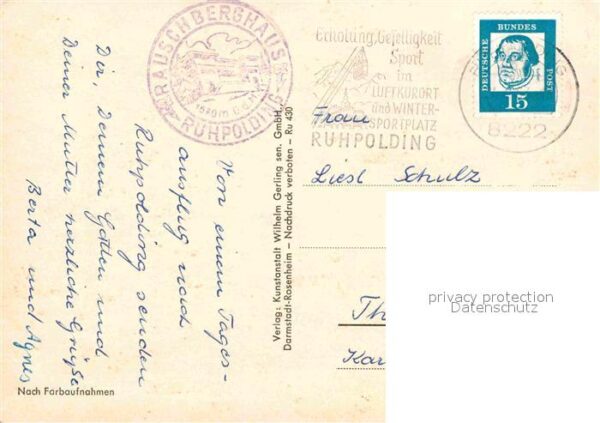 RAUSCHBERGHAUS
RUHPOLDING
Von einem Tages-
ausflug nach
Ruhpolding senden
Dir, Deinem Gatten und
Deiner Mutter herzliche Grüße
Berta und Agnes
Nach Farbaufnahmen
Verlag: Kunstanstalt Wilhelm Gerling sen. GmbH.,
Darmstadt-Rosenheim — Nachdruck verboten — Ru 430
Erholung, Geselligkeit
Sport
im
LUFTKURORT
und WINTER-
SPORTPLATZ
RUHPOLDING
DEUTSCHE
BUNDES
POST
15
8222
Frau
Liesl Schulz
Th
Kar
privacy protection
Datenschutz